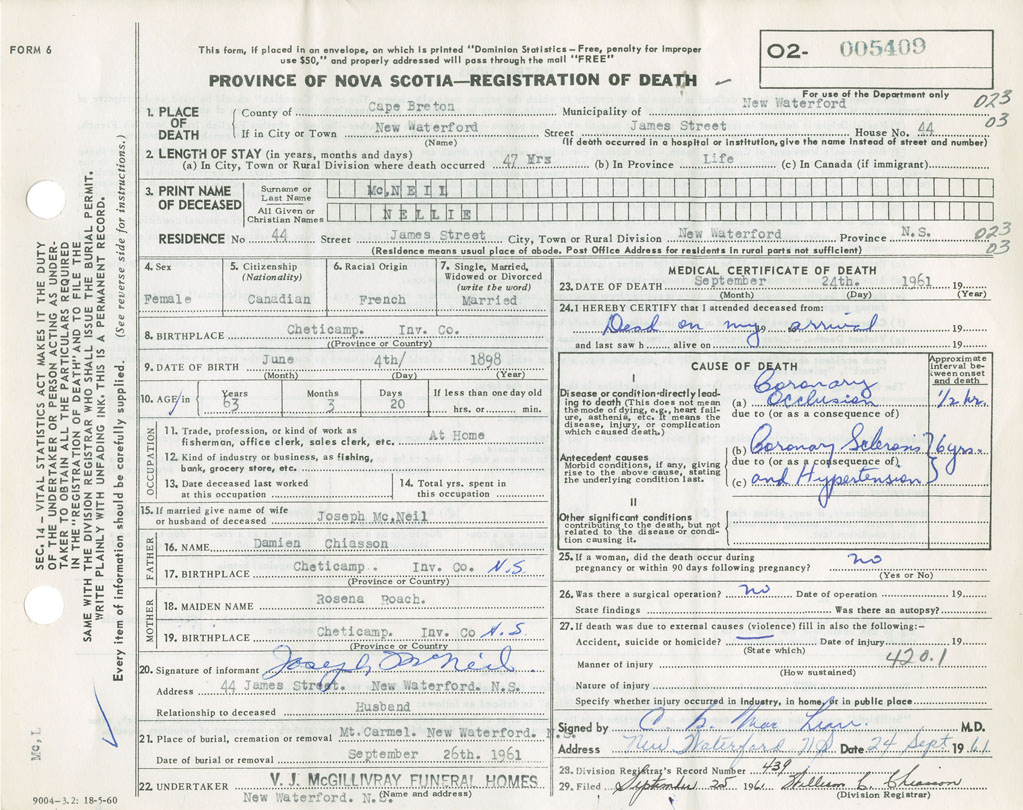 FORM 6
This form, if placed in an envelope, on which is printed "Dominion Statistics – Free, penalty for improper
use $50," and properly addressed will pass through the mail "FREE"
PROVINCE OF NOVA SCOTIA—REGISTRATION OF DEATH
O2- 005409
For use of the Department only
023
03
1. PLACE OF DEATH
County of Cape Breton Municipality of New Waterford
If in City or Town New Waterford Street James Street House No. 44
(Name) (If death occurred in a hospital or institution, give the name instead of street and number)
2. LENGTH OF STAY (in years, months and days)
(a) In City, Town or Rural Division where death occurred 47 Yrs (b) In Province Life (c) In Canada (if immigrant)
3. PRINT NAME OF DECEASED
Surname or Last Name Mc,NEIL
All Given or Christian Names NELLIE
RESIDENCE No 44 Street James Street City, Town or Rural Division New Waterford Province N.S.
023
03
(Residence means usual place of abode. Post Office Address for residents in rural parts not sufficient)
4. Sex
Female
5. Citizenship
(Nationality)
Canadian
6. Racial Origin
French
7. Single, Married,
Widowed or Divorced
(write the word)
Married
8. BIRTHPLACE Cheticamp. Inv. Co.
((Province or Country)
9. DATE OF BIRTH June 4th/ 1898
(Month) (Day) (Year)
10. AGE in
Years Months Days If less than one day old
63 3 20 hrs. or min.
OCCUPATION
11. Trade, profession, or kind of work as
fisherman, office clerk, sales clerk, etc. At Home
12. Kind of industry or business, as fishing,
bank, grocery store, etc.
13. Date deceased last worked
at this occupation
14. Total yrs. spent in
this occupation
15. If married give name of wife
or husband of deceased Joseph Mc.Neil
FATHER
16. NAME Damien Chiasson
17. BIRTHPLACE Cheticamp. Inv. Co. N.S.
(Province or Country)
MOTHER
18. MAIDEN NAME Rosena Roach.
19. BIRTHPLACE Cheticamp. Inv. Co N.S.
(Province or Country)
20. Signature of informant Joseph McNeil
Address 44 James Street. New Waterford. N.S.
Relationship to deceased Husband
21. Place of burial, cremation or removal Mt.Carmel. New Waterford. N.S.
Date of burial or removal September 26th. 1961
22. UNDERTAKER V. J. McGILLIVRAY FUNERAL HOMES
New Waterford. N.S. (Name and address)
MEDICAL CERTIFICATE OF DEATH
23. DATE OF DEATH September 24th. 1961 19
(Month) (Day) (Year)
24. I HEREBY CERTIFY that I attended deceased from:
Dead on my 19 arrival 19
and last saw h alive on 19
CAUSE OF DEATH
Approximate interval between onset and death
I
Disease or condition directly leading to death (This does not mean the mode of dying, e.g., heart failure, asthenia, etc. It means the disease, injury, or complication which caused death.)
(a) Coronary Occlusion 1/2 hr.
due to (or as a consequence of)
Antecedent causes
Morbid conditions, if any, giving rise to the above cause, stating the underlying condition last.
(b) Coronary Sclerosis 6 yrs.
due to (or as a consequence of)
(c) and Hypertension
II
Other significant conditions
contributing to the death, but not related to the disease or condition causing it.
25. If a woman, did the death occur during
pregnancy or within 90 days following pregnancy? no
(Yes or No)
26. Was there a surgical operation? no Date of operation 19
State findings Was there an autopsy?
27. If death was due to external causes (violence) fill in also the following:–
Accident, suicide or homicide? Date of injury 19
(State which)
420.1
Manner of injury
(How sustained)
Nature of injury
Specify whether injury occurred in industry, in home, or in public place
Signed by C. M.D.
Address New Waterford N.S. Date 24 Sept 1961
28. Division Registrar's Record Number 439
29. Filed September 25 1961 William C. Chiasson
(Division Registrar)
SEC. 14 – VITAL STATISTICS ACT MAKES IT THE DUTY
OF THE UNDERTAKER OR PERSON ACTING AS UNDER-
TAKER TO OBTAIN ALL THE PARTICULARS REQUIRED
IN THE "REGISTRATION OF DEATH" AND TO FILE THE
SAME WITH THE DIVISION REGISTRAR WHO SHALL ISSUE THE BURIAL PERMIT.
WRITE PLAINLY WITH UNFADING INK. THIS IS A PERMANENT RECORD.
Every item of information should be carefully supplied. (See reverse side for instructions.)
Mc,L
9004–3.2: 18-5-60